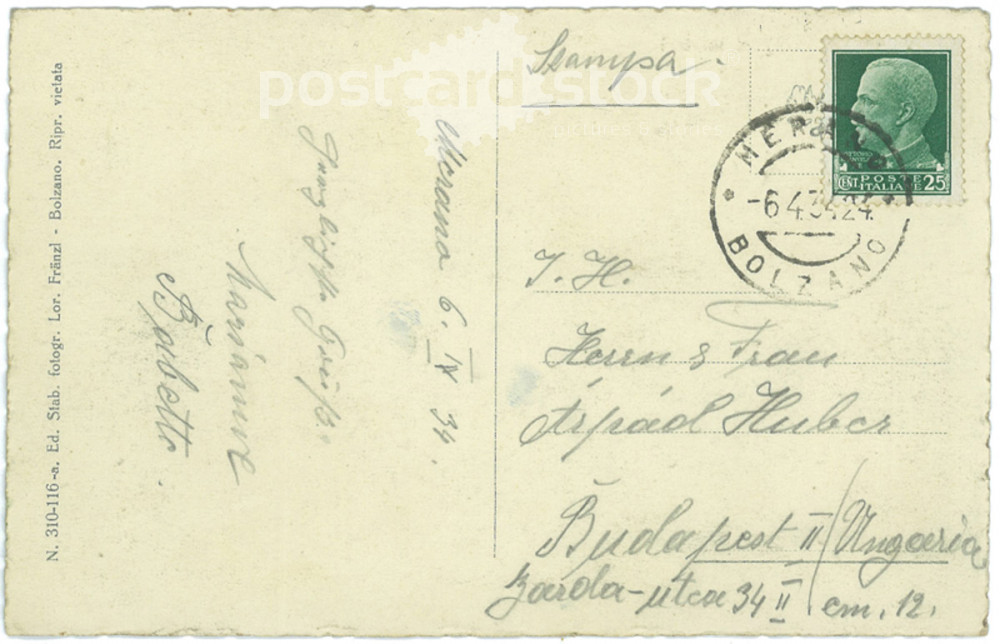 N. 310-116-a. Ed. Stab. fotogr. Lor. Fränzl - Bolzano. Ripr. vietata
Merano 6. IV 34.
Herzlichste Grüße.
Marianne
Babette.
Stampa.
MERANO
-6 4.34. 24
BOLZANO
CENT POSTE
ITALIANE 25
T. H.
Herrn & Frau
Árpád Huber
Budapest II / Ungaria
Zárda-utca 34 II / em. 12.
postcard stock
pictures & stories